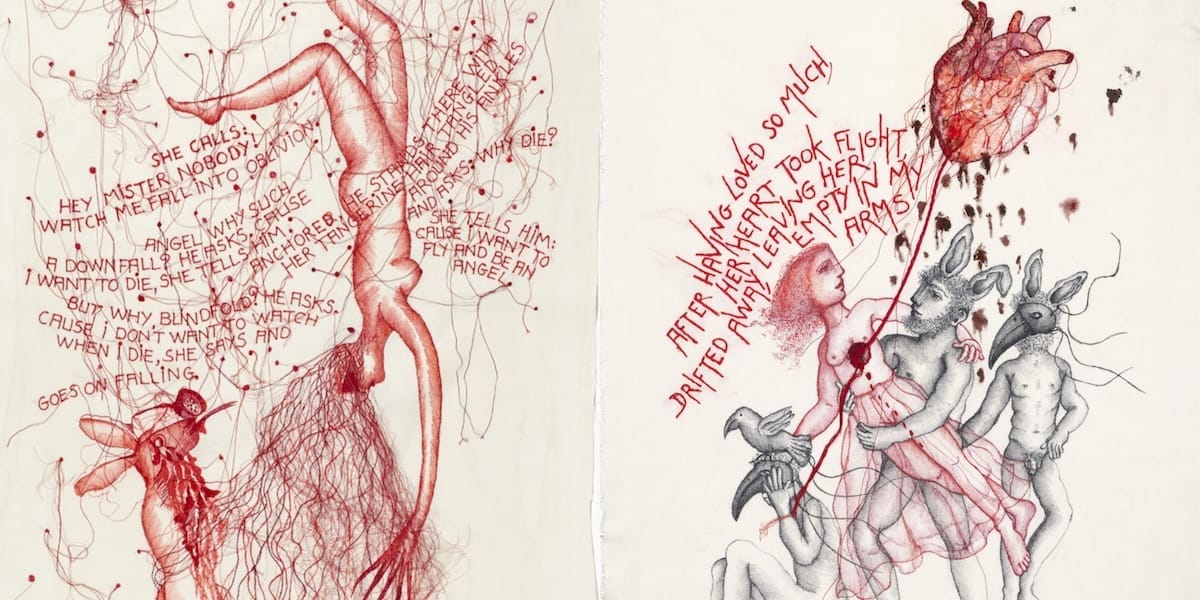 SHE CALLS:
HEY MISTER NOBODY!
WATCH ME FALL INTO OBLIVION.
ANGEL WHY SUCH
A DOWNFALL? HE ASKS. CAUSE
I WANT TO DIE, SHE TELLS HIM.
BUT WHY, BLINDFOLD? HE ASKS.
CAUSE i DONT WANT TO WATCH
WHEN I DIE, SHE SAYS AND
GOES ON FALLING.
ANCHORED HE STANDS THERE WITH
HER TANGERINE HAIR TANGLED
AROUND HIS ANKLES
AND ASKS: WHY DIE?
SHE TELLS HIM:
CAUSE I WANT TO
FLY AND BE AN
ANGEL
AFTER HAVING LOVED SO MUCH
HER HEART TOOK FLIGHT
DRIFTED AWAY LEAVING HER
EMPTY IN MY
ARMS